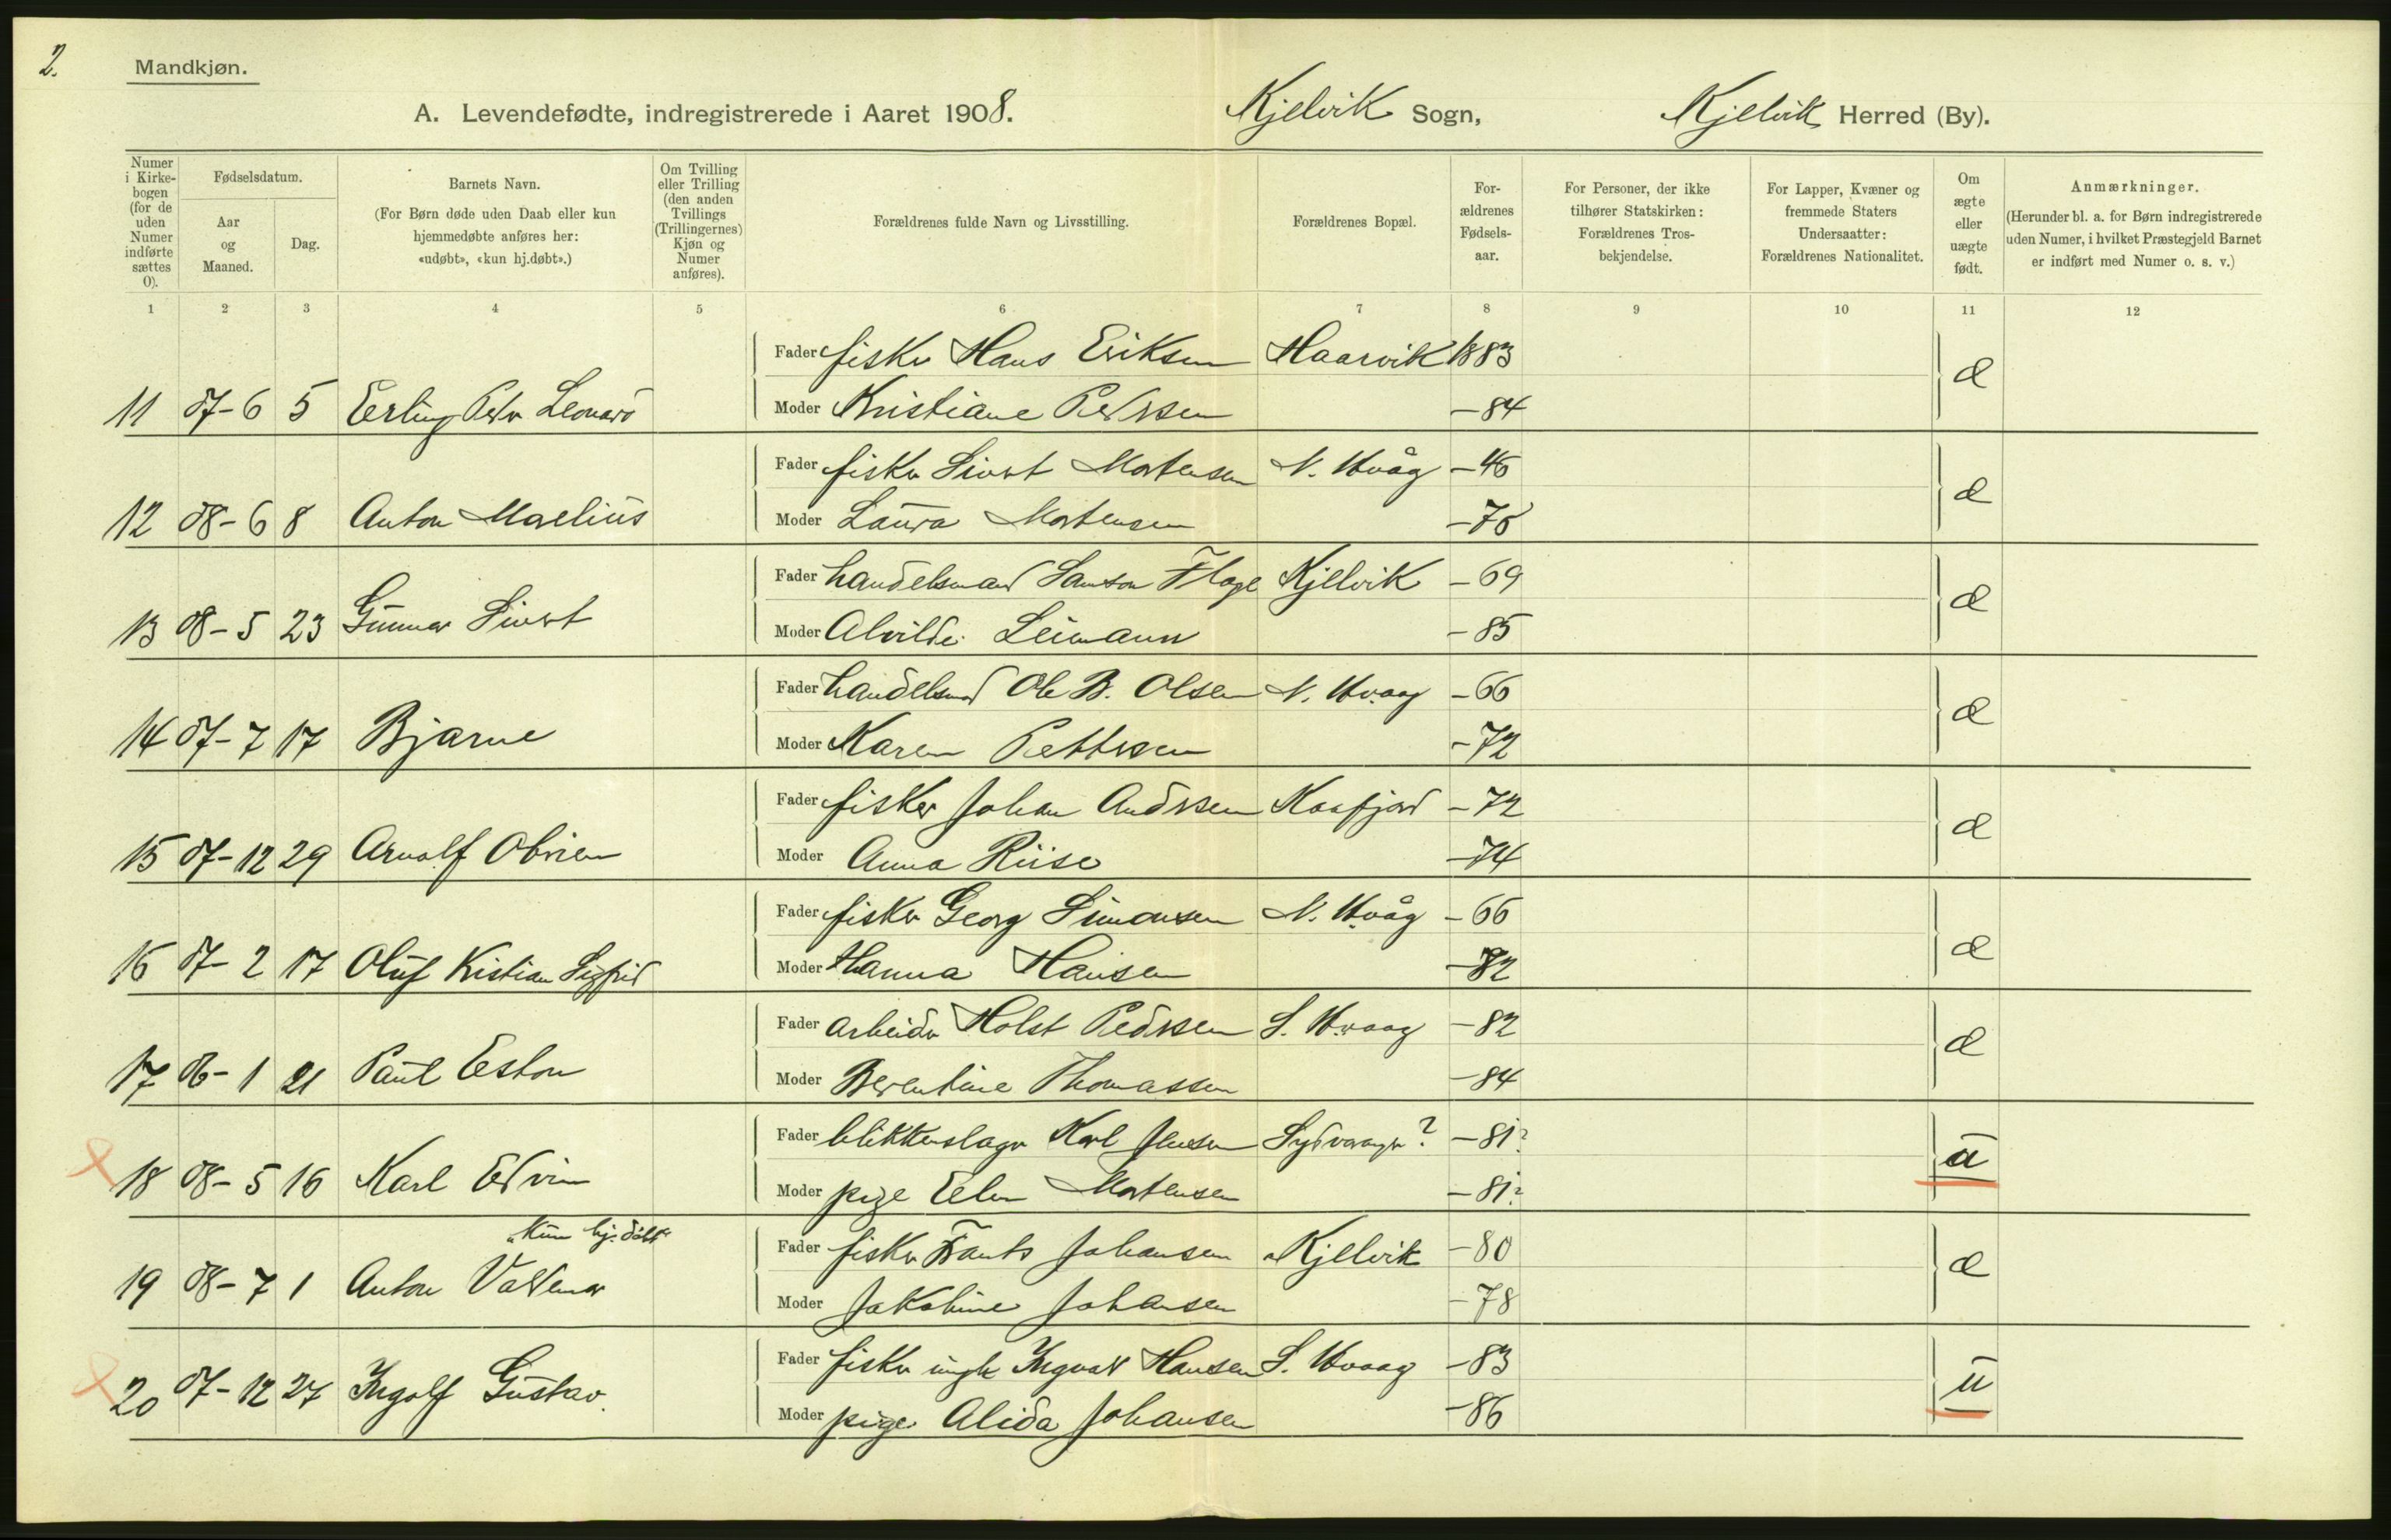 2.
Mandkjøn.
A. Levendefødte, indregistrerede i Aaret 1908. Kjelvik Sogn, Kjelvik Herred (By).
Numer i Kirkebogen (for de uden Numer indførte sættes 0).
Fødselsdatum.
Aar og Maaned.
Dag.
Barnets Navn.
(For Børn døde uden Daab eller kun hjemmedøbte anføres her: «udøbt», «kun hj.døbt».)
Om Tvilling eller Trilling (den anden Tvillings (Trillingernes) Kjøn og Numer anføres).
Forældrenes fulde Navn og Livsstilling.
Forældrenes Bopæl.
For-ældrenes Fødsels-aar.
For Personer, der ikke tilhører Statskirken: Forældrenes Tros-bekjendelse.
For Lapper, Kvæner og fremmede Staters Undersaatter: Forældrenes Nationalitet.
Om ægte eller uægte født.
Anmærkninger.
(Herunder bl. a. for Børn indregistrerede uden Numer, i hvilket Præstegjeld Barnet er indført med Numer o. s. v.)
1 2 3 4 5 6 7 8 9 10 11 12
Fader fisker Hans Eriksen Haarvik 1883 æ
11 07-6 5 Erling Peder Leonard Moder Kristiane Pedersen -84
Fader fisker Sivert Mortensen N. Hvåg -46 æ
12 08-6 8 Anton Marelius Moder Laura Mortensen
Fader handelsmand Samson Kjelvik -69 æ
13 08-5 23 Gunnar Sivert Moder Alvilde Leimann -85
Fader handelsmd Ole B. Olsen N. Hvaag -66 æ
14 07-7 17 Bjarne Moder Karen Pettersen -72
Fader fisker Johan Andersen Kaafjord -72 æ
15 07-12 29 Arnolf Moder Anna Riise -74
Fader fisker Georg Simonsen N. Hvåg -66 æ
16 07-2 17 Oluf Kistian Sigfrid Moder Hanna Hansen -82
Fader arbeider Holst Pedersen S. Hvaag -82 æ
17 06-1 21 Paul Eston Moder Berentine Thomassen -84
Fader blikkenslager Karl Jensen Sydvaranger? -81? u
18 08-5 16 Karl Edvin Moder pige Elen Mortensen -81?
"kun hj. døbt" Fader fisker Frants Johansen Kjelvik -80 æ
19 08-7 1 Anton Valdemar Moder Jakobine Johansen -78
Fader fisker ungk Ingvald Hansen S. Hvaag -83 u
20 07-12 27 Ingolf Gustav. Moder pige Alida Johansen -86